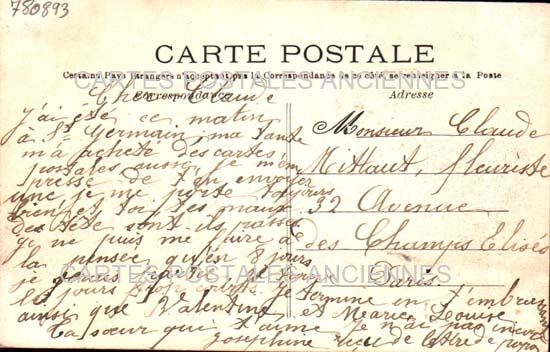 780893
CARTE POSTALE
Certains Pays Etrangers n'acceptant pas la Correspondance de ce côté, se renseigner à la Poste
Correspondance
Adresse
CARTES POSTALES ANCIENNES
Cher Claude
j'ai été ce matin
à St Germain ma tante
m'a acheté des cartes
postales aussi je m'em
presse de t'en envoyer
une je me porte toujours
bien, et toi tes maux
de tête sont ils passés
je ne puis me faire à
la pensée qu'en 8 jours
je
les jours je termine en t'embrassant
ainsi que Valentine et Marie Louise
Ta sœur qui t'aime je n'ai pas encore
Josephine reçu de de papa
Monsieur Claude
Mithaut, fleuriste
32 Avenue
des Champs Elisés
Paris
CARTES POSTALES ANCIENNES